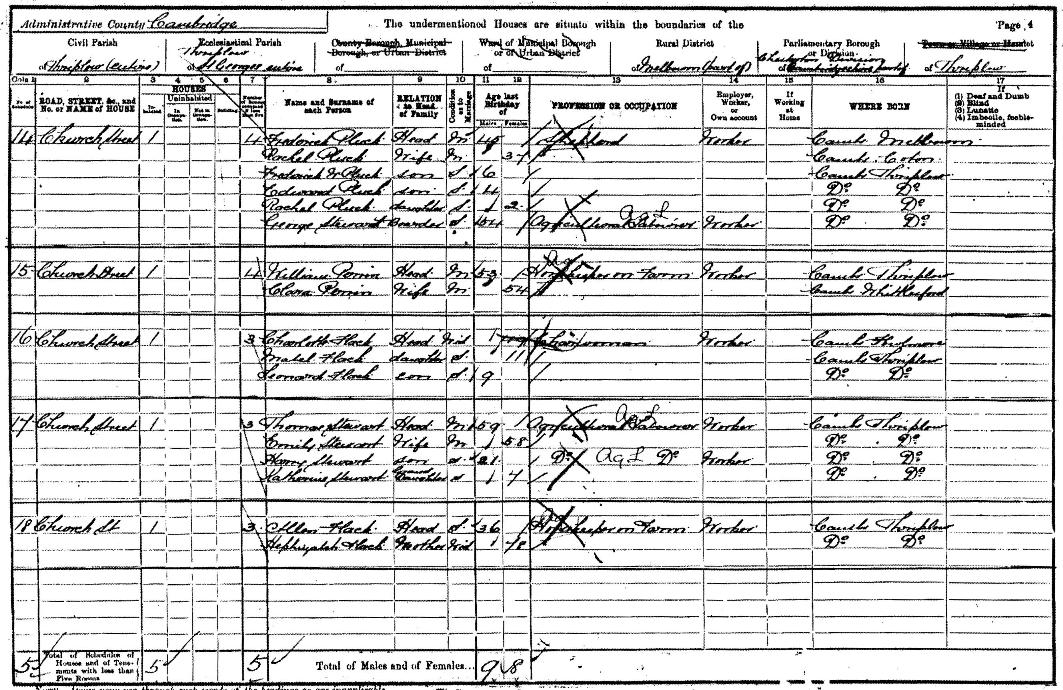 Administrative County Cambridge The undermentioned Houses are situate within the boundaries of the Page 4
Civil Parish Ecclesiastical Parish County Borough, Municipal Borough, or Urban District Ward of Municipal Borough or of Urban District Rural District Parliamentary Borough or Division Town or Village or Hamlet
of Thriplow (entire) Thriplow of St Georges entire of of of Melbourn (part of) of Thriplow
Cols 1 2 3 4 5 6 7 8 9 10 11 12 13 14 15 16 17
ROAD, STREET, &c., and No. or NAME of HOUSE HOUSES Inhabited Uninhabited Building Name and Surname of each Person RELATION to Head of Family Condition as to Marriage Age last Birthday of Males Females PROFESSION OR OCCUPATION Employer, Worker, or Own account If Working at Home WHERE BORN If (1) Deaf and Dumb (2) Blind (3) Lunatic (4) Imbecile, feeble-minded
14 Church Street 1 4 Frederick Pluck Head M Shepherd Worker Cambs Melbourn
Rachel Pluck Wife M 37 Cambs Coton
Frederick W Pluck son S 16 Cambs Thriplow
Edward Pluck son S 14 Do Do
Rachel Pluck daughter S 2 Do Do
George Stewart Boarder S 54 Agricultural Labourer Ag L Worker Do Do
15 Church Street 1 4 William Perrin Head M 53 Horsekeeper on Farm Worker Cambs Thriplow
Clara Perrin Wife M 54 Cambs Whittlesford
16 Church Street 1 3 Charlotte Flack Head Wid Charwoman Worker Cambs
Mabel Flack daughter S 11 Cambs Thriplow
Leonard Flack son S 9 Do Do
17 Church Street 1 3 Thomas Stewart Head M 59 Agricultural Labourer Ag L Worker Cambs Thriplow
Emily Stewart Wife M 58 Do Do
Harry Stewart son S 21 Do Ag L Do Worker Do Do
Katherine Stewart Grand Daughter S 7 Do Do
18 Church St 1 3 Allen Flack Head S 36 Horsekeeper on Farm Worker Cambs Thriplow
Flack Mother Wid 78 Do Do
5 Total of Schedules of Houses and of Tenements with less than Five Rooms 5 5 Total of Males and of Females... 9 8